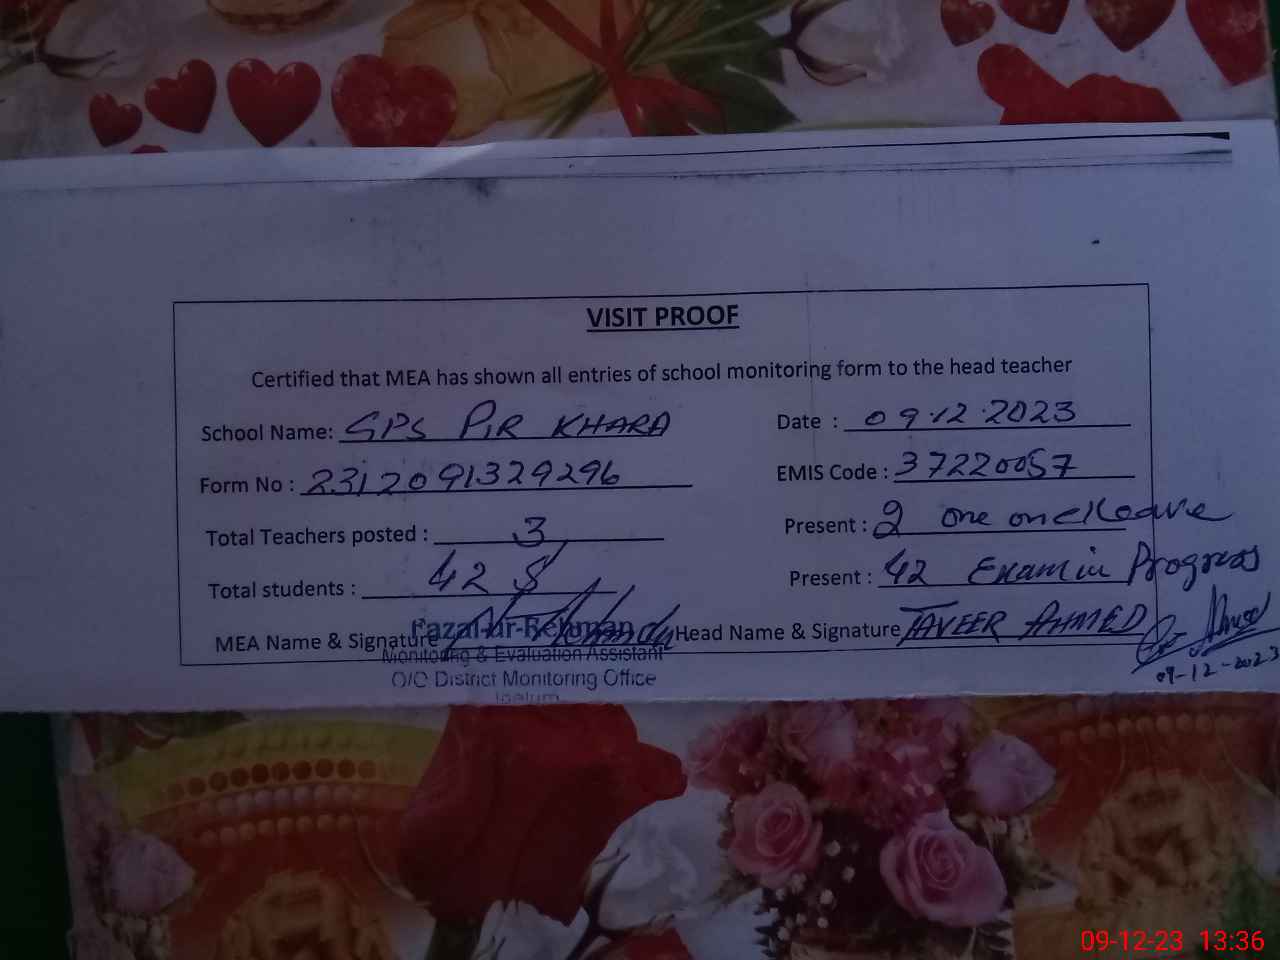 VISIT PROOF
Certified that MEA has shown all entries of school monitoring form to the head teacher
School Name: GPS PIR KHARA Date : 09.12.2023
Form No : 2312091329296 EMIS Code : 37220057
Total Teachers posted : 3 Present : 2 one on leave
Total students : 42 Present : 42 Exam in Progress
MEA Name & Signature Fazal-ur-Rehman Head Name & Signature TAVEER AHMED
Monitoring & Evaluation Assistant
O/O District Monitoring Office
09-12-2023
09-12-23 13:36